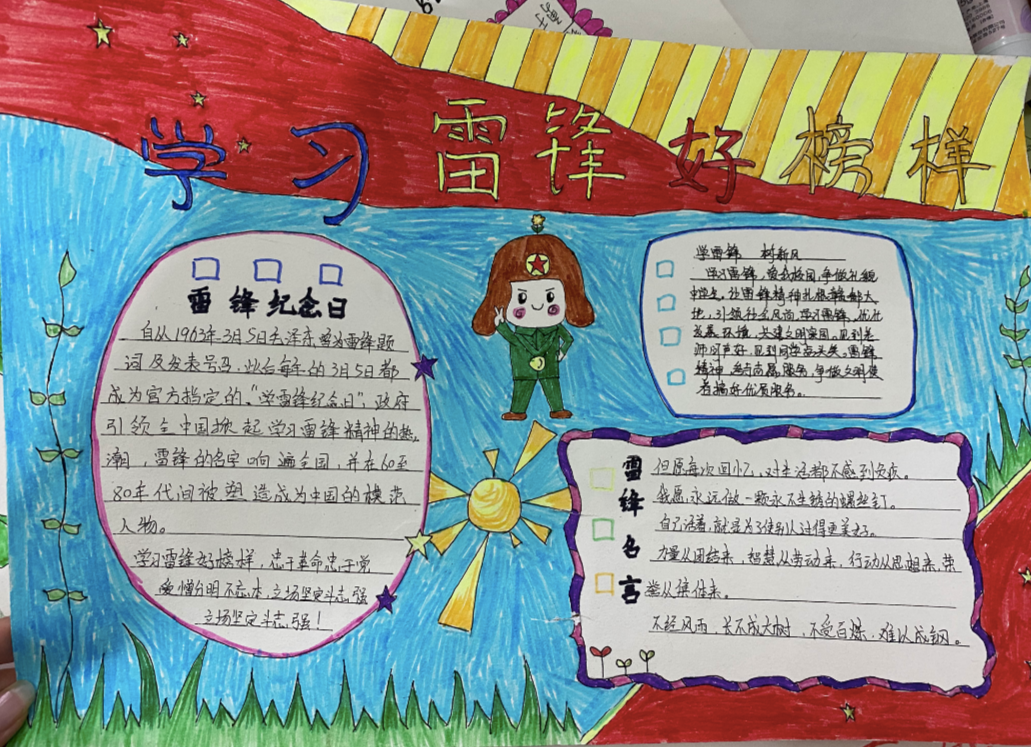 学习雷锋好榜样
雷锋纪念日
自从1963年3月5日毛泽东曾为雷锋题
词及发表号召,此后每年的3月5日都
成为官方指定的“学雷锋纪念日”,政府
引领全中国掀起学习雷锋精神的热
潮,雷锋的名字响遍全国,并在60至
80年代间被塑造成为中国的模范
人物。
学习雷锋好榜样,忠于革命忠于党
爱憎分明不忘本,立场坚定斗志强
立场坚定斗志强!
学雷锋 树新风
学习雷锋,爱我校园,争做礼貌
中学生,让雷锋精神扎根
地,引领什么风尚,学习雷锋,优化
发展环境,共建文明家园。见到老
师问声好,见到同学点点头。雷锋
精神,服务,争做文明使
者搞好优质服务。
雷锋名言
但愿每次回忆,对生活都不感到负疚。
我愿永远做一颗永不生锈的螺丝钉。
自己活着,就是为了使别人过得更美好。
力量从团结来,智慧从劳动来,行动从思想来,荣
誉从集体来。
不经风雨,长不成大树,不受百炼,难以成钢。